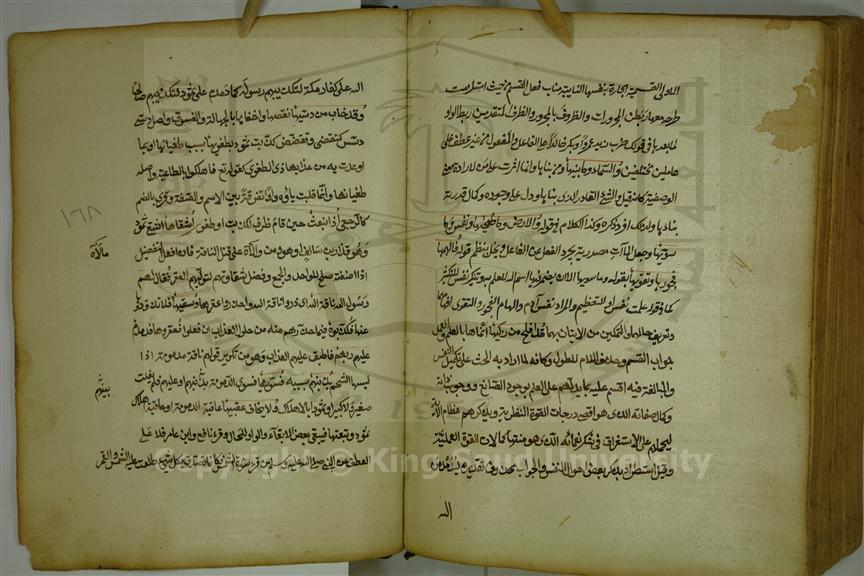 الاولى القسمية الجارة بنفسها النائبة مناب فعل القسم من حيث استلزمت
طرحه معها ربطن المجرورات والظروف بالمجرور والظرف المتقدمين ربط الواو
لما بعدها في قولك ضرب زيد عمرا وبكر خالدا على الفاعل والمفعول من غير عطف على
عاملين مختلفين والسماء وما بنيها ومن بناها وانما اوثرت على من لارادة معنى
الوصفية كانه قيل والشيء القادر الذي بناها ودل على وجوده وكمال قدرته
بناؤها ولذلك افرد ذكره وكذا الكلام في قوله والارض وما طحيها ونفس وما
سويها وجعل الماآت مصدرية يجرد الفعل عن الفاعل ويخل بنظم قوله فالهمها
فجورها وتقويها بقوله وما سويها الا ان يضمر فيها اسم الله للعلم به وتنكير نفس للتكثير
كما في قوله علمت نفس او للتعظيم والمراد نفس آدم والهام الفجور والتقوى افهامهما
وتعريف حالهما والتمكين من الاتيان بهما قد افلح من زكيها انماها بالعلم والعمل
جواب القسم وحذف اللام للطول وكانه لما اراد به الحث على تكميل النفس
والمبالغة فيه اقسم عليه بما يدلهم على العلم بوجود الصانع ووجوب ذاته
وكمال صفاته الذي هو اقصى درجات القوة النظرية ويذكرهم عظائم آلائه
ليحملهم على الاستغراق في شكر نعمائه الذي هو منتهى كمالات القوة العملية
وقيل استطراد بذكر بعض احوال النفس والجواب محذوف تقديره ليدمدمن
الله
الله على كفار مكة لتكذيبهم رسوله كما دمدم على ثمود لتكذيبهم صالحا
وقد خاب من دسيها نقصها واخفاها بالجهالة والفسوق واصل دسى
دسس كتقضى وتقضض كذبت ثمود بطغويها بسبب طغيانها او بما
اوعدت به من عذابها ذي الطغوى كقوله تعالى فاهلكوا بالطاغية واصله
طغياها وانما قلبت ياؤه واوا تفرقة بين الاسم والصفة وقرئ بالضم
كالرجعى اذ انبعث حين قام ظرف لكذبت او طغوى اشقاها اشقى ثمود
وهو قدار بن سالف او هو ومن مالأه على قتل الناقة فان افعل التفضيل
مالأه
اذا اضفته صلح للواحد والجمع وفضل شقاوتهم لتوليهم العقر فقال لهم
رسول الله ناقة الله اي ذروا ناقة الله واحذروا عقرها وسقيها فلا تذودوها
عنها فكذبوه فيما حذرهم منه من حلول العذاب ان فعلوا فعقروها فدمدم
عليهم ربهم فاطبق عليهم العذاب وهو من تكرير قولهم ناقة مدمومة اذا
البسها الشحم بذنبهم بسببه فسويها فسوى الدمدمة بينهم او عليهم فلم يفلت
بينهم
صغير ولا كبير او ثمود بالاهلاك ولا يخاف عقبيها عاقبة الدمدمة او عاقبة اهلاك
ثمود وتبعتها فيبقي بعض الابقاء والواو للحال وقرأ نافع وابن عامر فلا على
العطف عن النبي صلى الله عليه وسلم من قرأ سورة الشمس فكانما تصدق بكل شيء طلعت عليه الشمس والقمر
١٦٨
Copyright © King Saud University